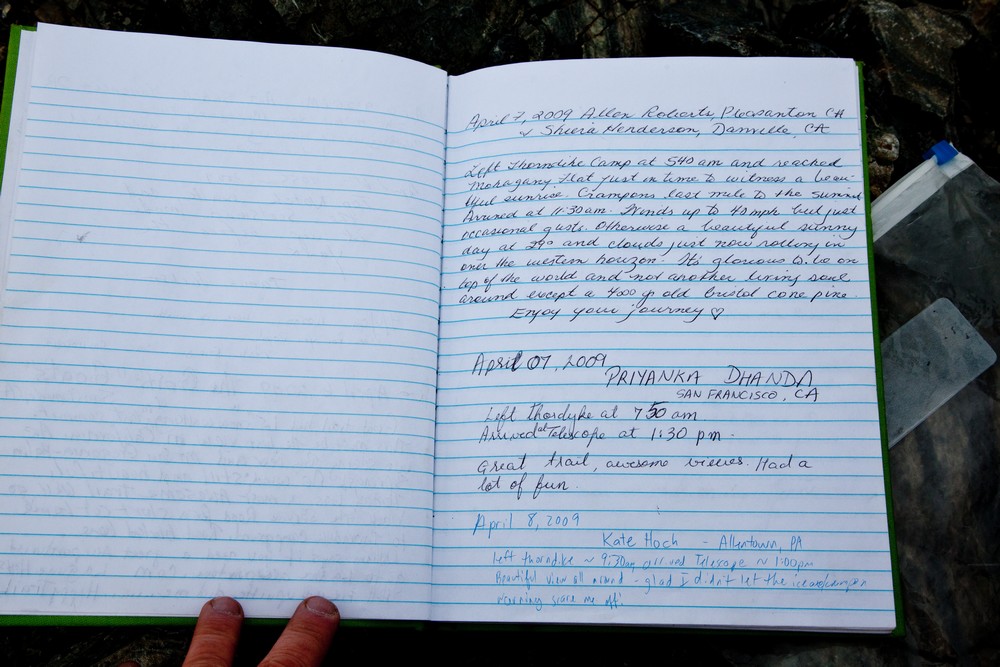 April 7, 2009 Allen Roberts Pleasanton CA
Shiera Henderson, Danville, CA
Left Thorndike Camp at 540 am and reached
Mahagany Flat just in time to witness a beau-
tiful sunrise. Crampons last mile to the summit
Arrived at 11:30am. Winds up to 40 mph but just
occasional gusts. Otherwise a beautiful sunny
day at 29° and clouds just now rolling in
over the western horizon. It's glorious to be on
top of the world and not another living soul
around except a 4000 yr old bristol cone pine.
Enjoy your journey ♡
April 07, 2009
PRIYANKA DHANDA
SAN FRANCISCO, CA
Left thordyke at 7 50 am
Arrived at Telescope at 1:30 pm.
Great trail, awesome views. Had a
lot of fun.
April 8, 2009
Kate Hoch - Allentown, PA
left thorndike ~ 9:30am arrived Telescope ~ 1:00pm
Beautiful view all around - glad I didn't let the ice and/crampon
warning scare me off!